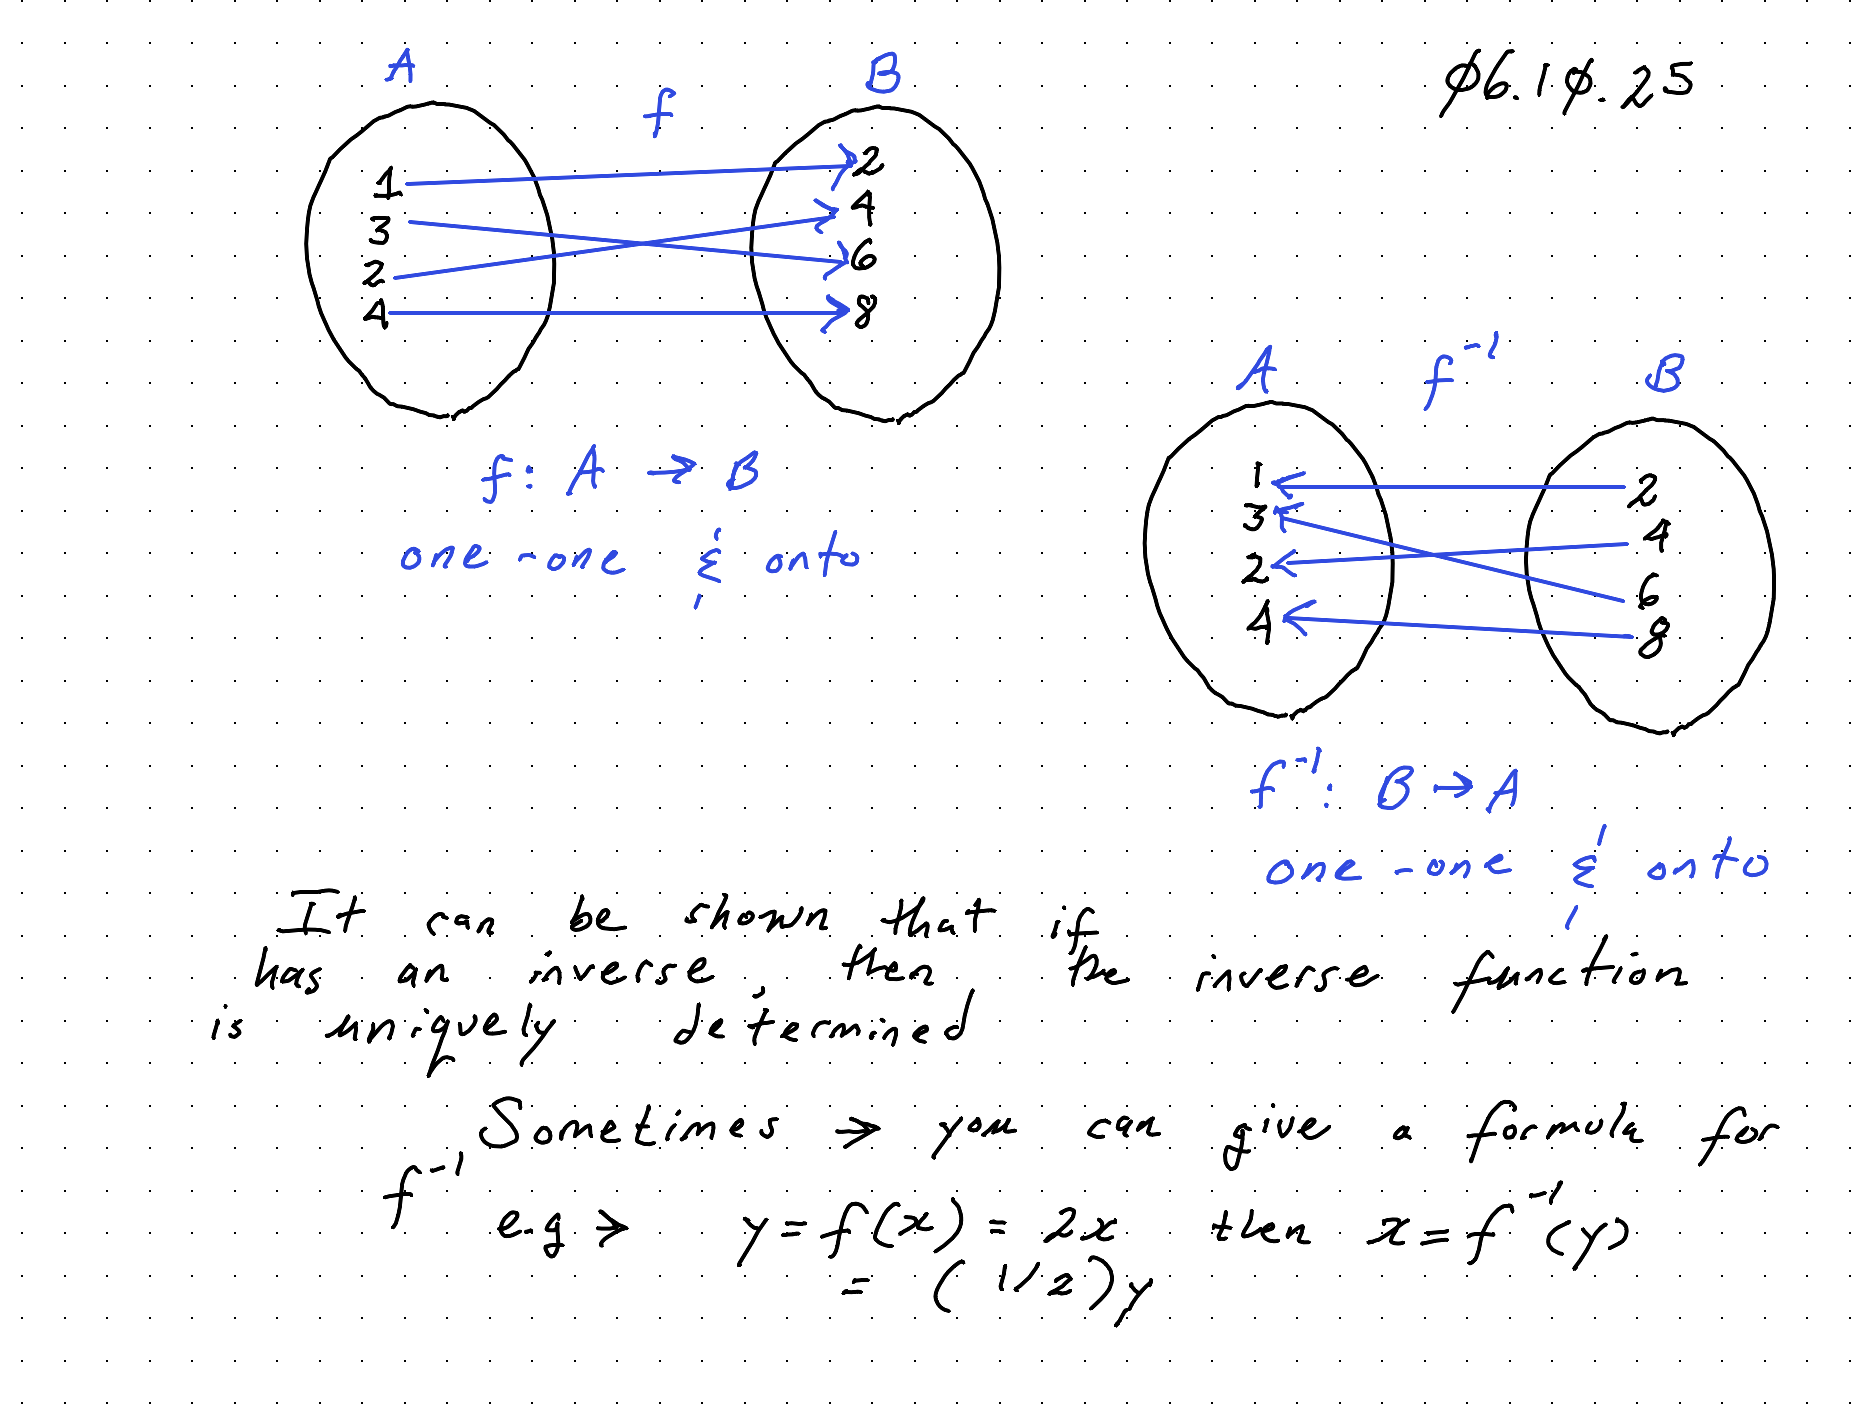 ø6.1ø.25
A f B
1 2
3 4
2 6
4 8
f: A → B
one-one & onto
A f⁻¹ B
1 2
3 4
2 6
4 8
f⁻¹: B → A
one-one & onto
It can be shown that if
has an inverse, then the inverse function
is uniquely determined
Sometimes → you can give a formula for
f⁻¹
e.g → y = f(x) = 2x then x = f⁻¹(y)
= (1/2)y